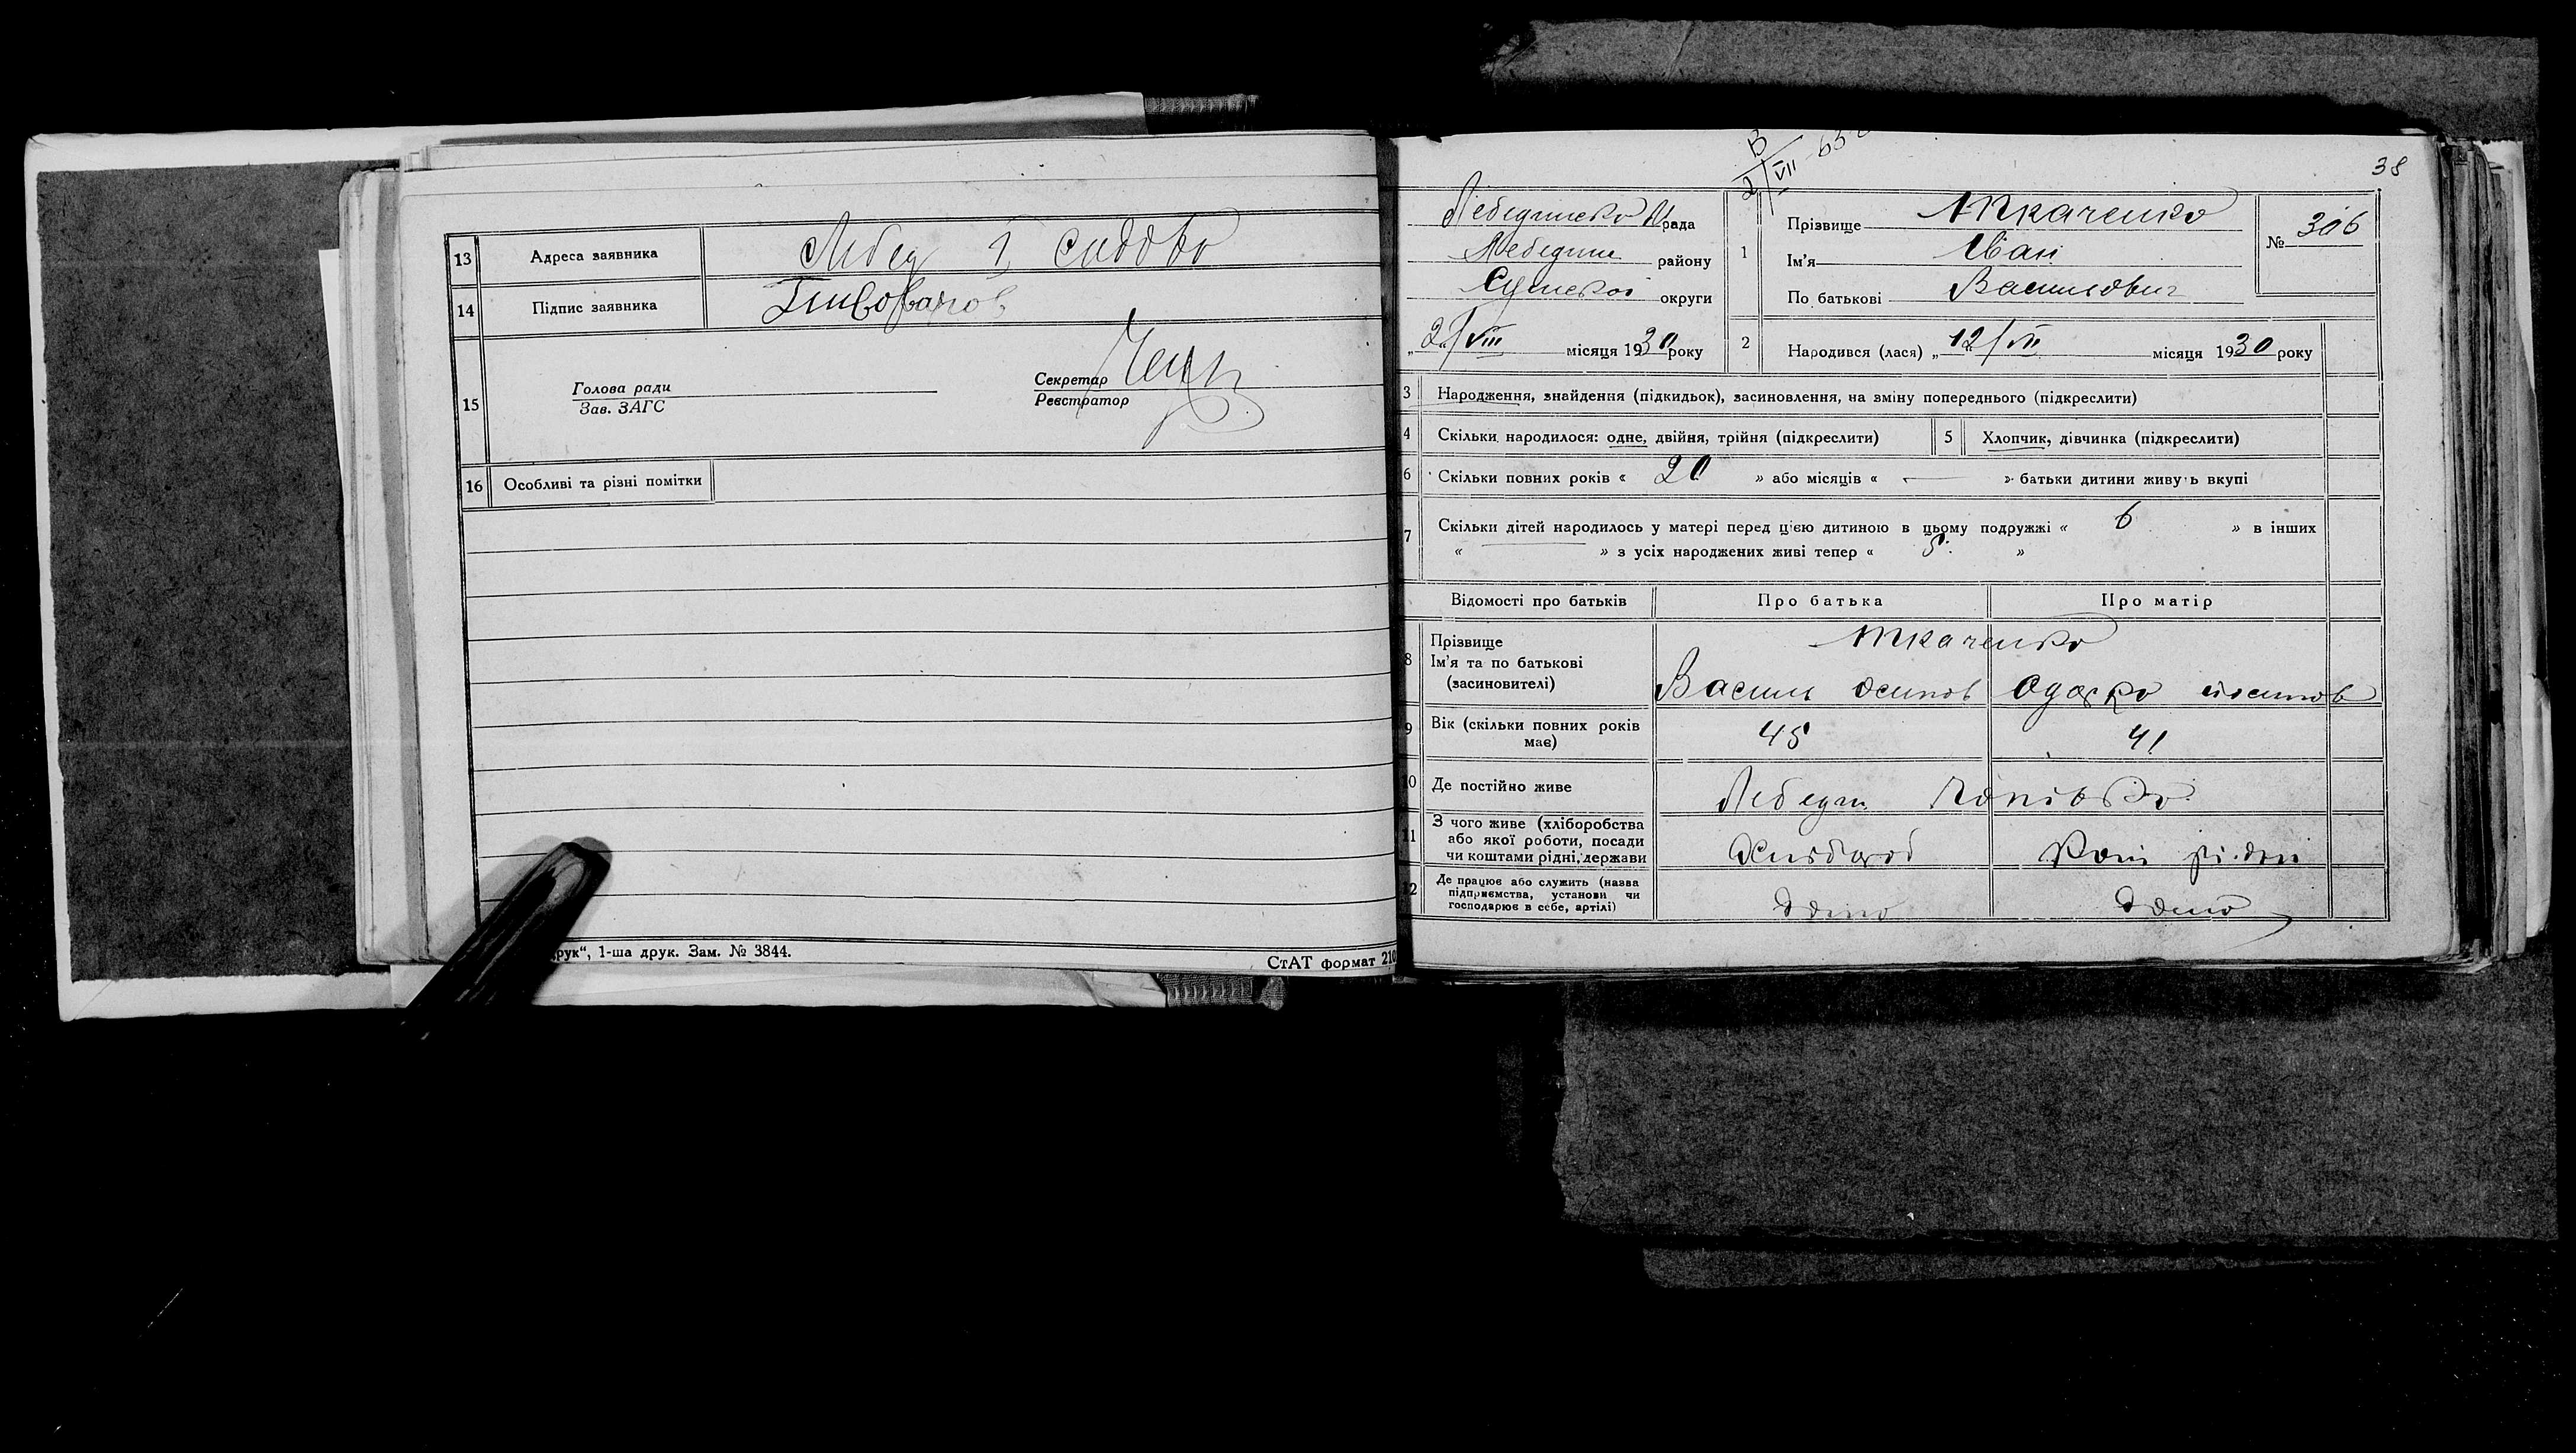 13 Адреса заявника Лебед 1 садова
14 Підпис заявника
15 Голова ради Секретар
Зав. ЗАГС Реєстратор
16 Особливі та різні помітки
друк“, 1-ша друк. Зам. № 3844.
СтАТ формат 210
38
2/VII
Лебединська рада
Лебедин району
Сумської округи
„2“/VIII місяця 1930 року
1 Прізвище Ткаченко
Ім'я Іван
По батькові Васильович
№ 306
2 Народився (лася) „12“/VII місяця 1930 року
3 Народження, знайдення (підкидьок), засиновлення, на зміну попереднього (підкреслити)
4 Скільки народилося: одне, двійня, трійня (підкреслити) 5 Хлопчик, дівчинка (підкреслити)
6 Скільки повних років « 20 » або місяців « — » батьки дитини живуть вкупі
7 Скільки дітей народилось у матері перед цією дитиною в цьому подружжі « 6 » в інших
« — » з усіх народжених живі тепер « 5 »
Відомості про батьків Про батька Про матір
8 Прізвище Ткаченко
Ім'я та по батькові
(засиновителі) Василь Осипов Одарка Йосипов
9 Вік (скільки повних років має) 45 41
10 Де постійно живе Лебедин
11 З чого живе (хліборобства
або якої роботи, посади
чи коштами рідні, держави Хлібороб
12 Де працює або служить (назва
підприємства, установи чи
господарює в себе, артілі) вдома вдома